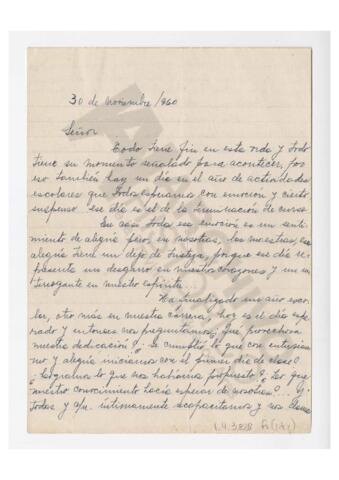 30 de Noviembre/960
Señor
Todo tiene fin en esta vida y todo
tiene su momento señalado para acontecer, por
eso también hay un día en el año de actividades
escolares que todos esperamos con emoción y cierto
suspenso ese día es el de la terminación de curso
En casi todos esa emoción es un senti-
miento de alegría pero, en nosotras, las maestras, esa
alegría tiene un dejo de tristeza, porque ese día re-
presenta un desgarro en nuestro corazones y un in-
terrogante en nuestro espíritu...
Ha finalizado un año esco-
lar, otro más en nuestra carrera, hoy es el día espe-
rado y entonces nos preguntamos: ¿fue provechosa
nuestra dedicación? ¿Se cumplió lo que con entusias-
mo y alegría iniciamos con el primer día de clase?
¿Logramos lo que nos habíamos propuesto? ¿Lo que
nuestro conocimiento hacía esperar de nosotras?... y
todas y c/u. íntimamente recapacitamos y nos
1.4.3828 fo(1A4)